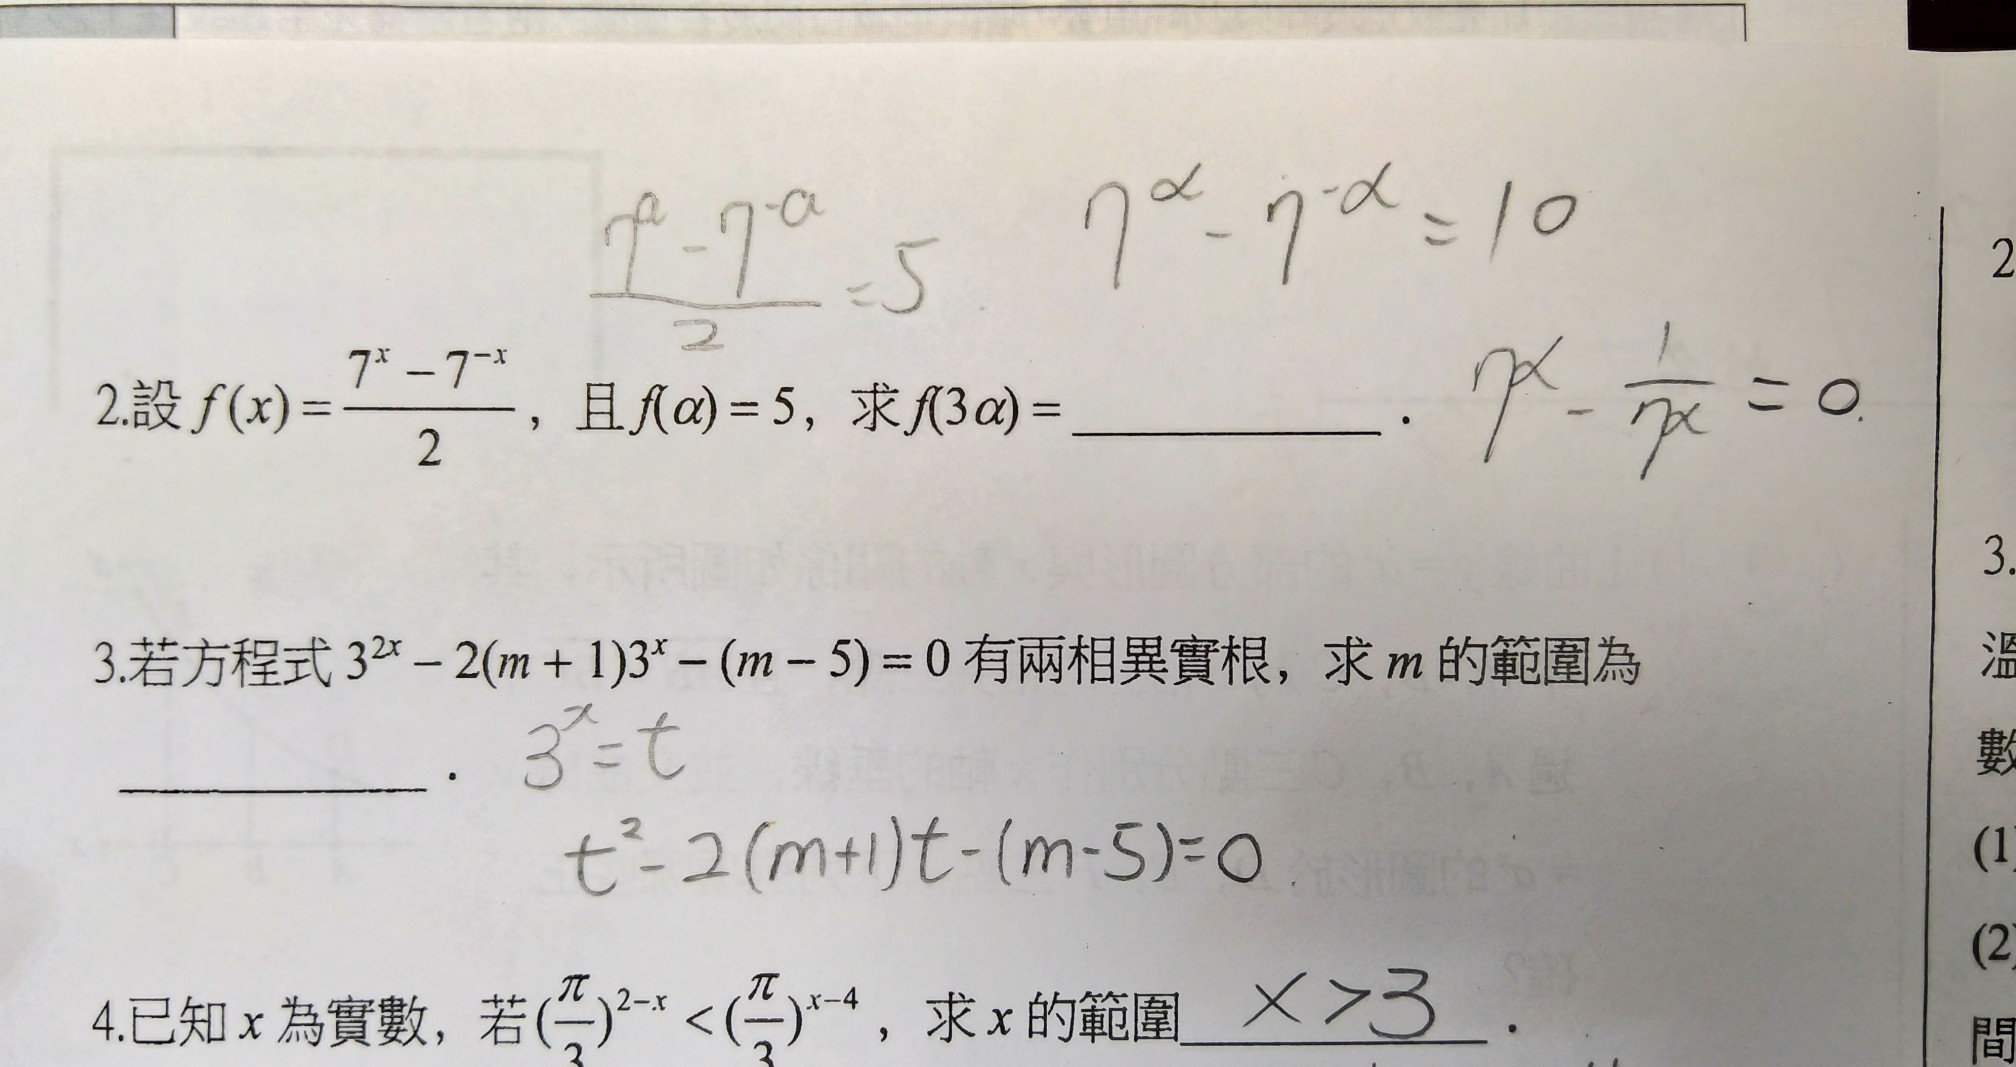 7^a - 7^-a / 2 = 5
7^α - 7^-α = 10
2.設 f(x) = (7^x - 7^-x)/2，且 f(α) = 5，求 f(3α) = ____________．
7^α - 1/7^α = 0.
3.若方程式 3^2x – 2(m + 1)3^x – (m – 5) = 0 有兩相異實根，求 m 的範圍為
____________．
3^x = t
t² - 2(m+1)t - (m-5) = 0.
4.已知 x 為實數，若 (π/3)^2–x < (π/3)^x–4，求 x 的範圍 x > 3．
2
3.
溫
數
(1)
(2)
間